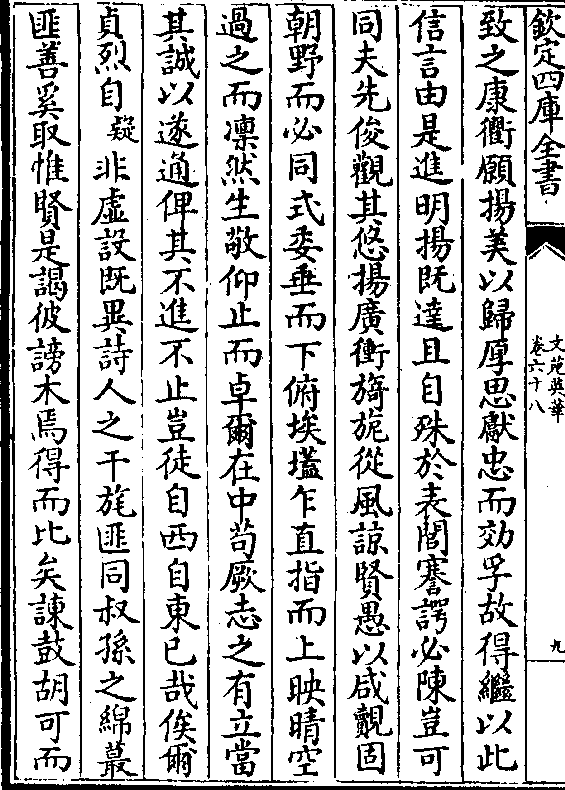 欽定四庫全書
文苑英華
卷六十八
九
致之康衢願揚美以歸厚思獻忠而效孚故得繼以此
信言由是進明揚既達且自殊於表閭謇諤必陳豈可
同夫先俊觀其悠揚廣衢旖旎從風諒賢愚以咸覿固
朝野而必同式委垂而下俯埃壒乍直指而上映晴空
過之而凜然生敬仰止而卓爾在中苟厥志之有立當
其誠以遂通俾其不進不止豈徒自西自東已哉俟爾
貞烈自疑非虛設既異詩人之干旄匪同叔孫之綿蕞
匪善奚取惟賢是謁彼謗木焉得而比矣諫鼓胡可而